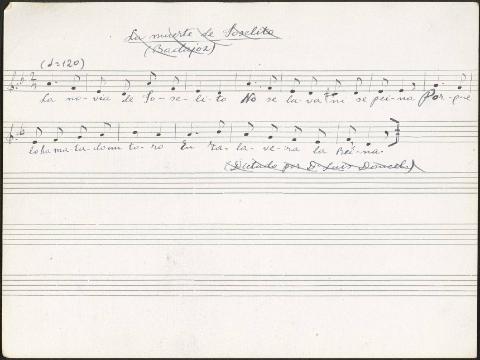 La muerte de Joselito
(Badajoz)
(♩=120)
La no-via de Jo-se-li-to No se la va ni se pei-na Por-que
lo ha ma-ta-do un to-ro En Ta-la-ve-ra la Rei-na.
(Dictado por D. Luis